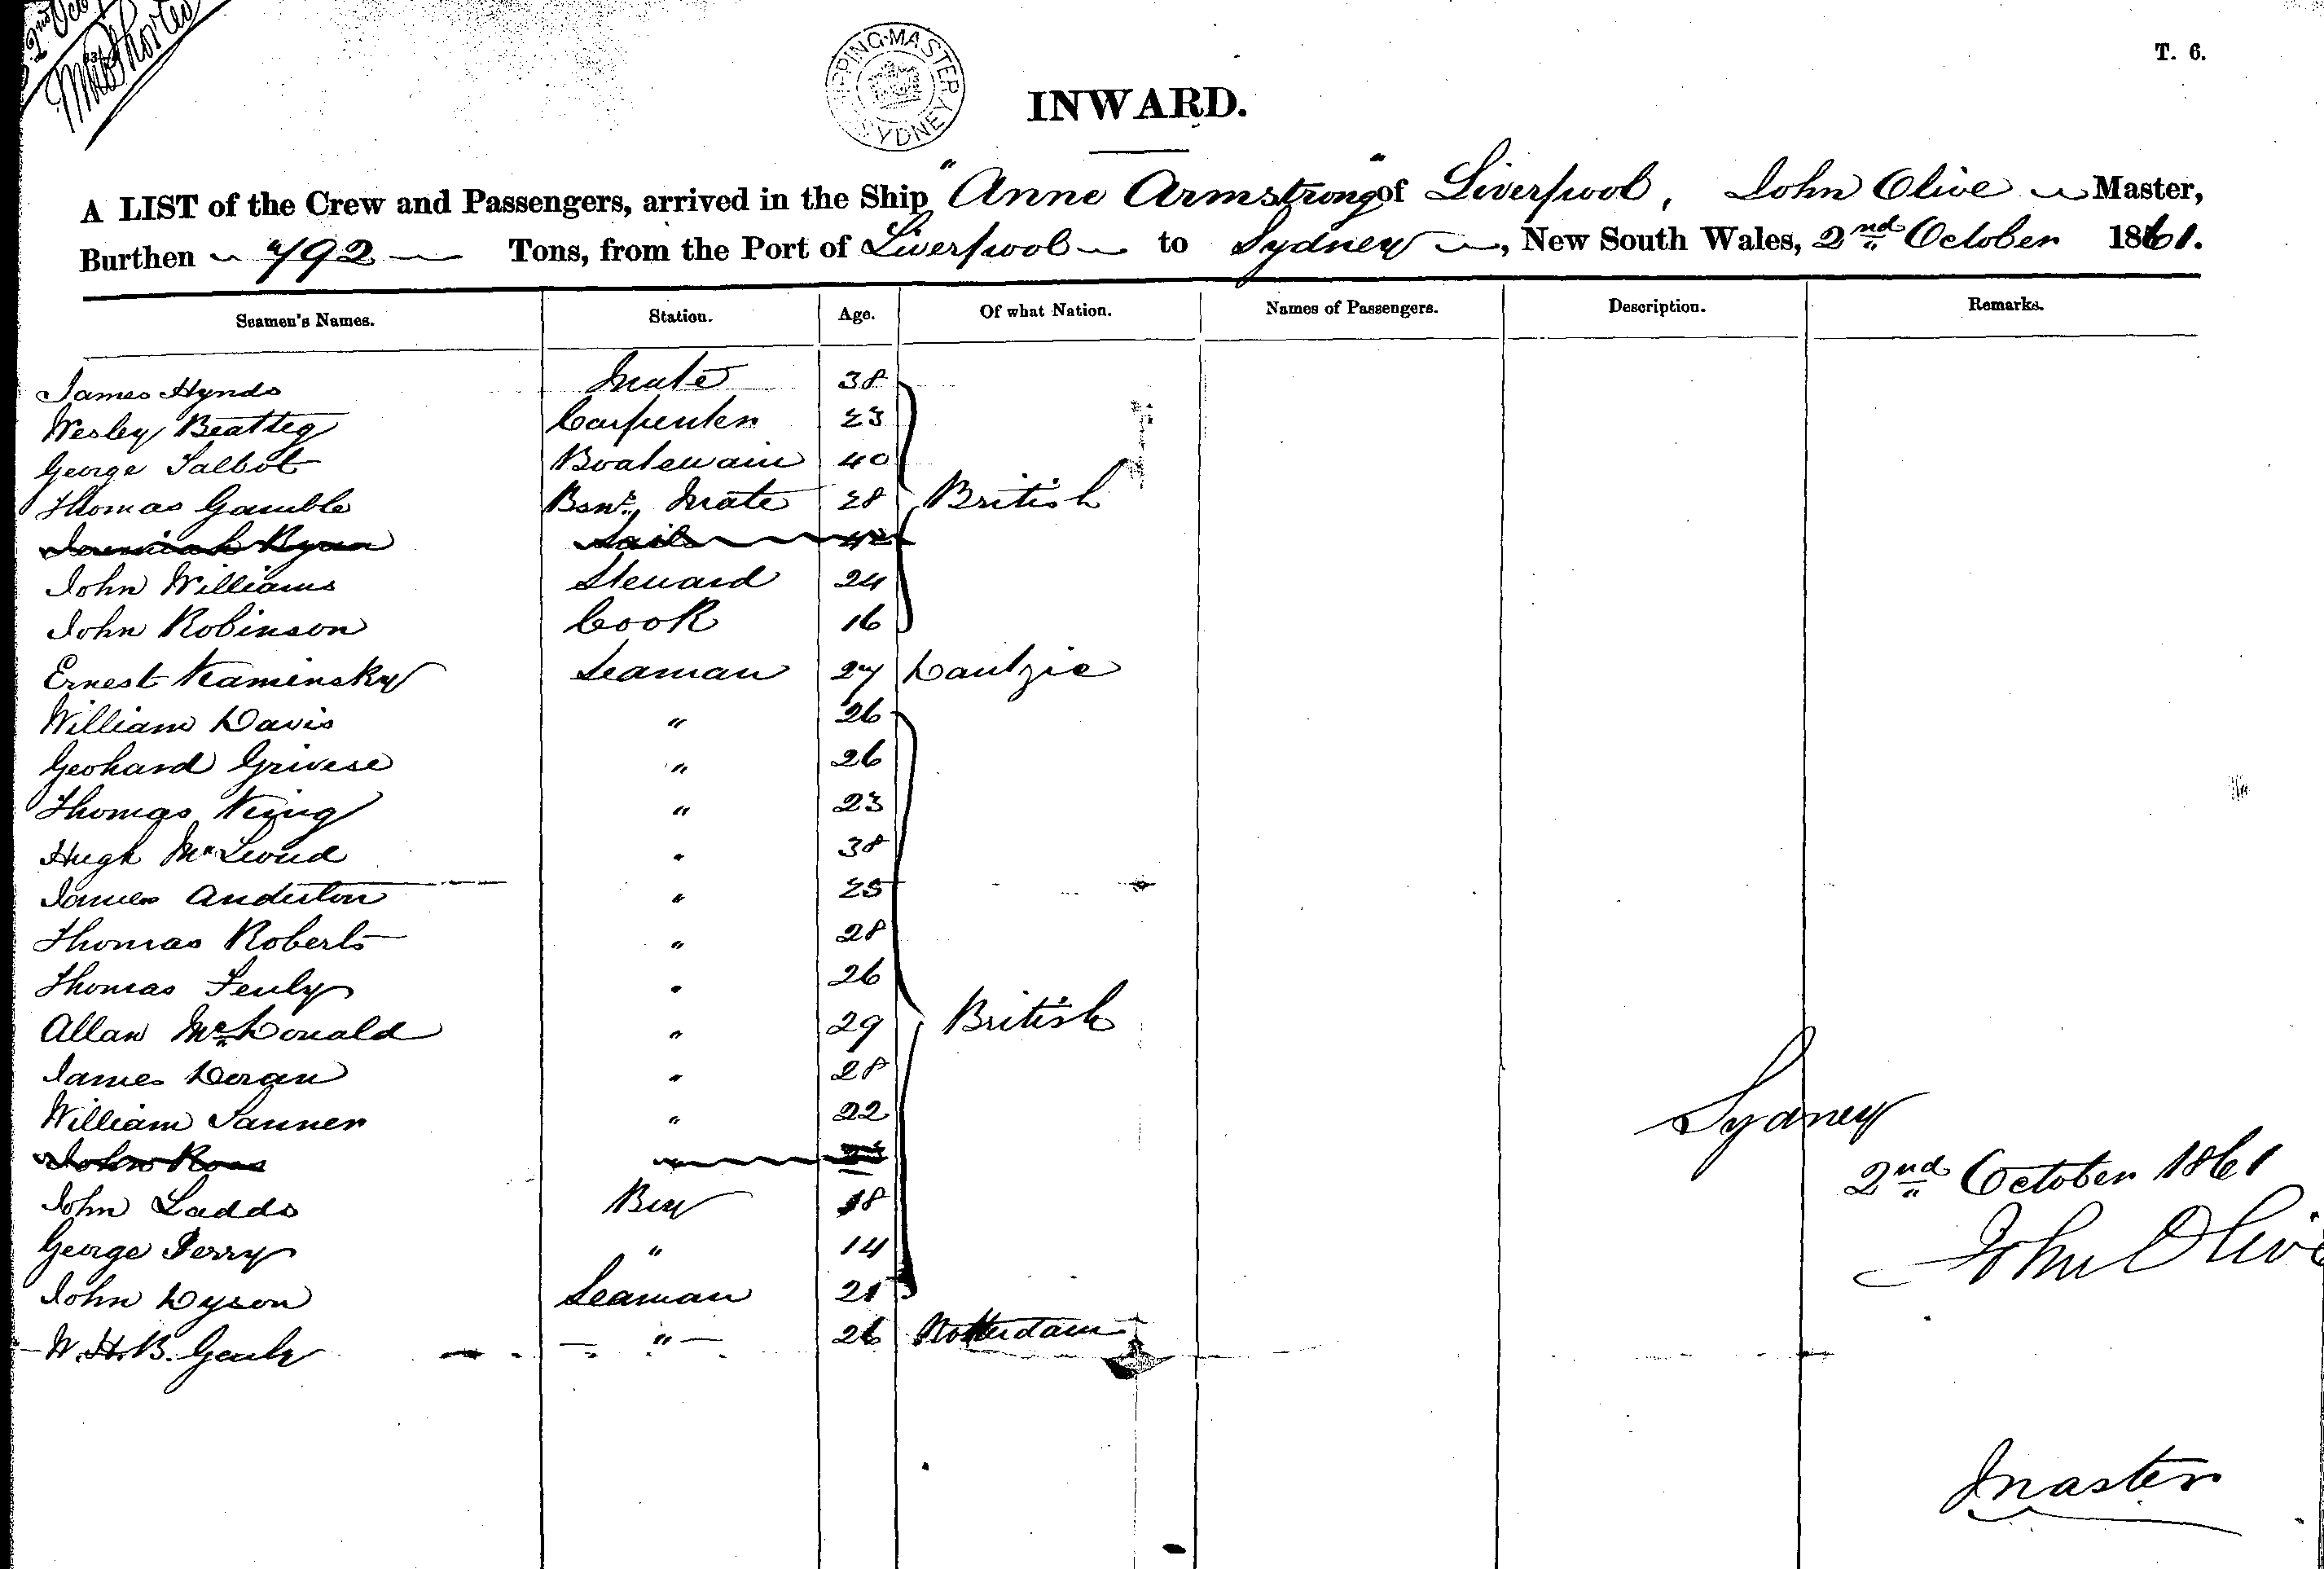 2nd Oct
T. 6.
SHIPPING MASTER SYDNEY
INWARD.
A LIST of the Crew and Passengers, arrived in the Ship "Anne Armstrong" of Liverpool, John Olive Master,
Burthen 792 Tons, from the Port of Liverpool to Sydney, New South Wales, 2nd October 1861.
Seamen's Names. Station. Age. Of what Nation. Names of Passengers. Description. Remarks.
James Hynds Mate 38
Wesley Beatteg Carpenter 23
George Talbot Boatswain 40
Thomas Gamble Bsns. Mate 28 British
Jeremiah Ryan Sails 42
John Williams Steward 24
John Robinson Cook 16
Ernest Kaminsky Seaman 27 Dantzic
William Davis " 26
Geohard Grivese " 26
Thomas King " 23
Hugh McLeoud " 38
James Anderton " 25
Thomas Roberts " 28
Thomas Fenly " 26
Allan McDonald " 29 British
James Doran " 28
William Tanner " 22
John Ross " 23
John Ladds Boy 18
George Perry " 14
John Dyson Seaman 21
W. H. B. " 26 Rotterdam
Sydney
2nd October 1861
John Olive
Master